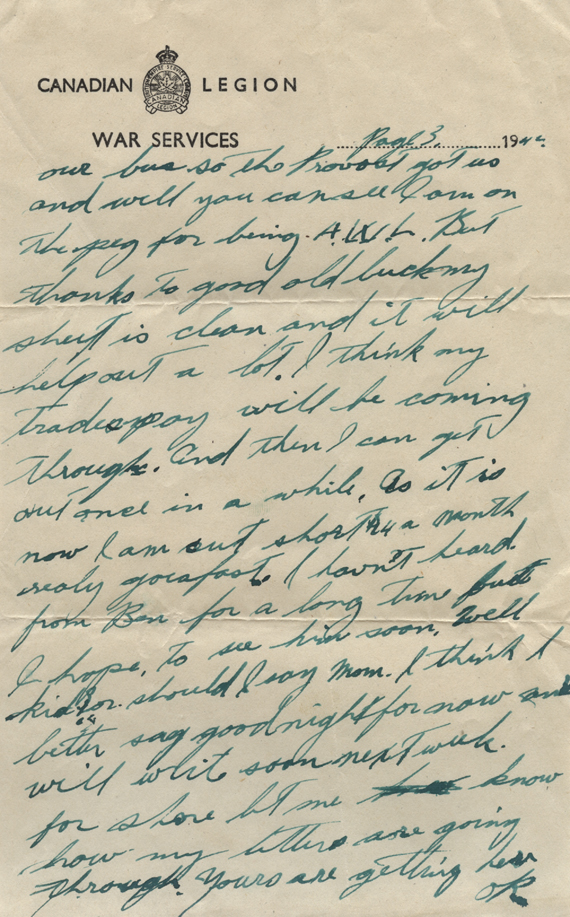 CANADIAN LEGION
WAR SERVICES Page 3. 1944
our bus so the Provost got us
and will you can see I am on
the peg for being A.W.L. But
thanks to good old luck my
sheet is clean and it will
help out a lot. I think my
trades pay will be coming
through. And then I can get
out once in a while, as it is
now I am cut short a month
realy goes fast. I havn't heard
from Ben for a long time but
I hope, to see him soon. Well
kid or should I say Mom. I think I
better say goodnight for now and
will write soon next week.
for shore let me know
how my letters are going
through. Yours are getting her
OK